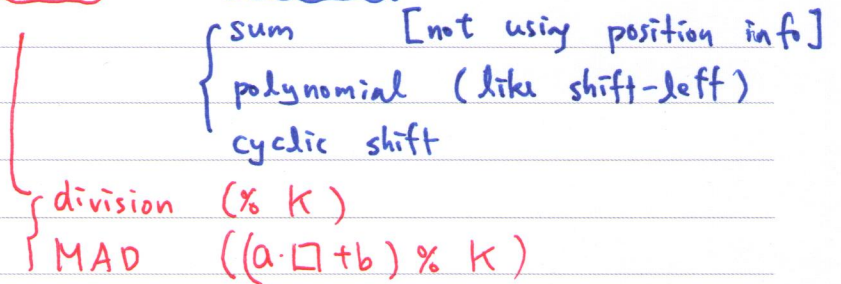 sum [not using position info]
polynomial (like shift-left)
cyclic shift
division (% K)
MAD ((a·□+b) % K)